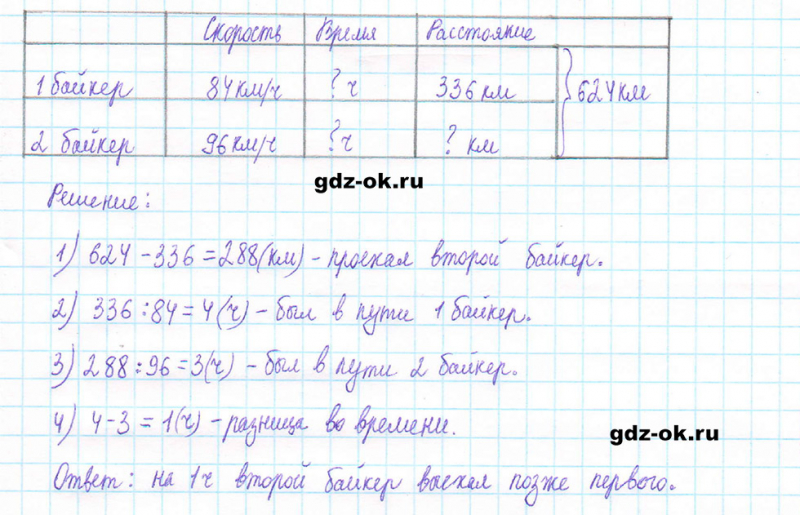 Скорость Время Расстояние
1 байкер 84 км/ч ? ч 336 км
624 км
2 байкер 96 км/ч ? ч ? км
gdz-ok.ru
Решение:
1) 624 - 336 = 288 (км) - проехал второй байкер.
2) 336 : 84 = 4 (ч) - был в пути 1 байкер.
3) 288 : 96 = 3 (ч) - был в пути 2 байкер.
4) 4 - 3 = 1 (ч) - разница во времени.
gdz-ok.ru
Ответ: на 1 ч второй байкер выехал позже первого.